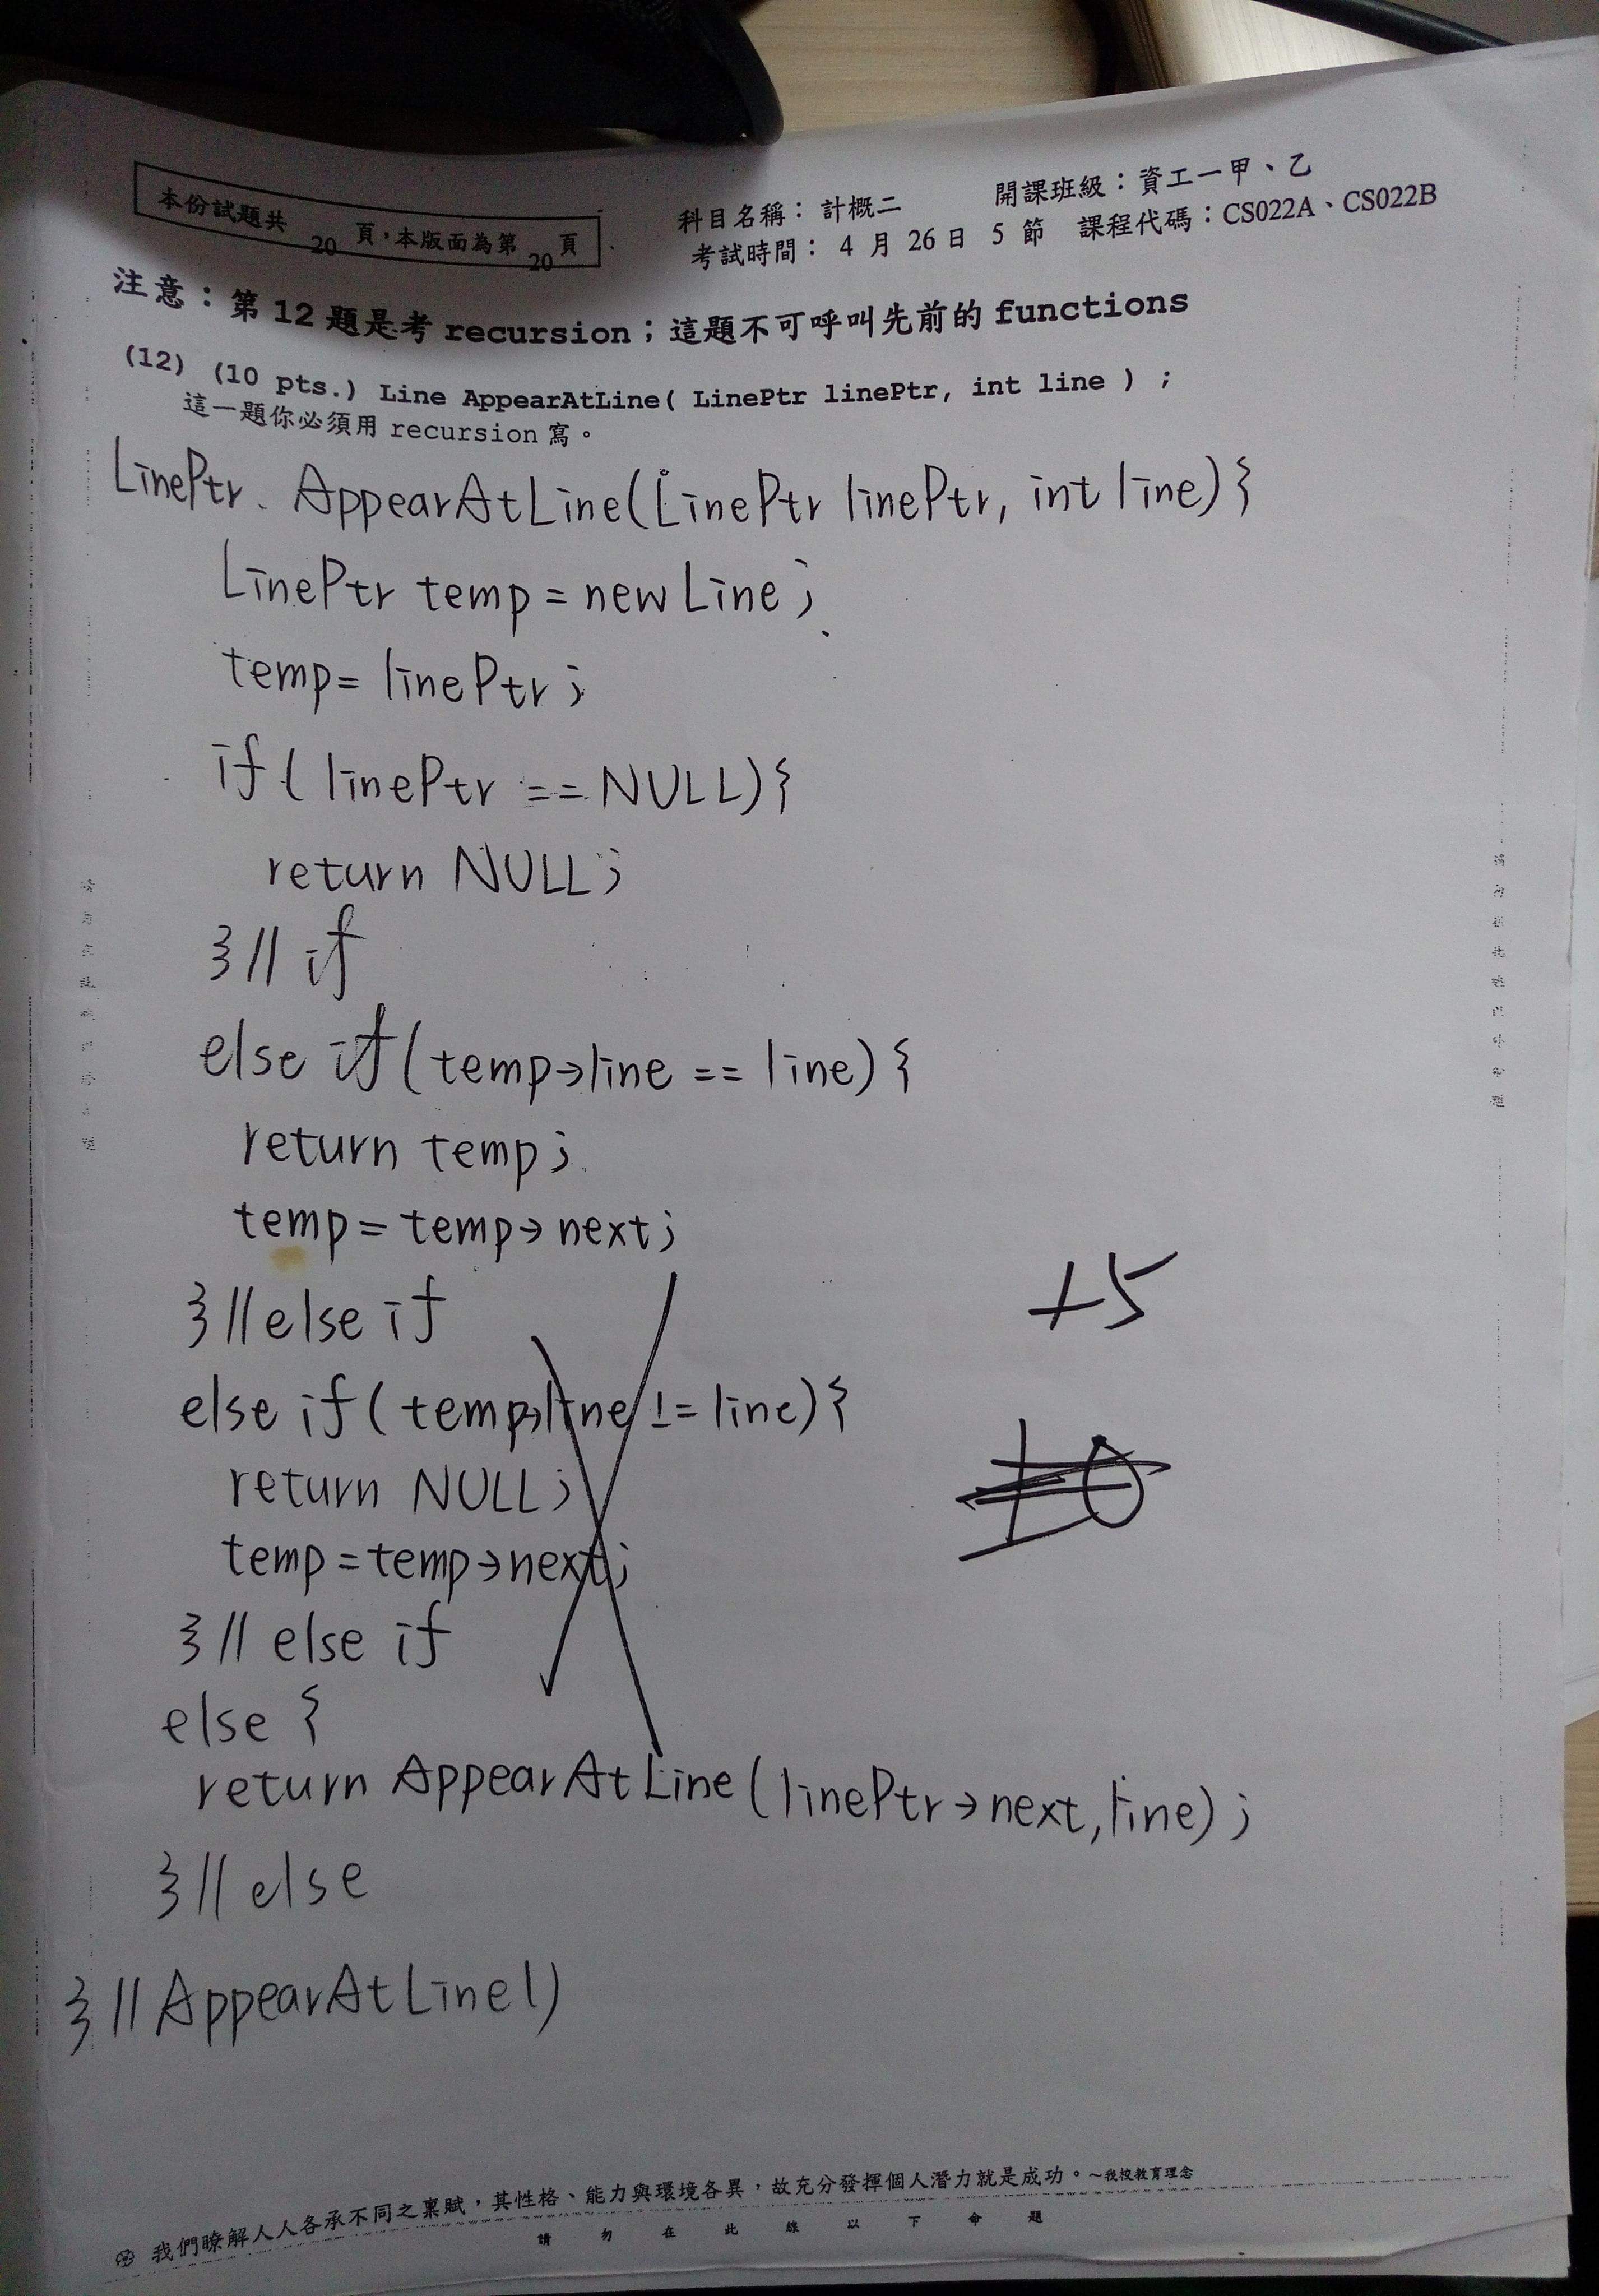 本份試題共 20 頁,本版面為第 20 頁
科目名稱：計概二 開課班級：資工一甲、乙
考試時間： 4 月 26 日 5 節 課程代碼：CS022A、CS022B
注意：第 12 題是考 recursion；這題不可呼叫先前的 functions
(12) (10 pts.) Line AppearAtLine( LinePtr linePtr, int line ) ;
這一題你必須用 recursion 寫。
LinePtr AppearAtLine(LinePtr linePtr, int line){
LinePtr temp = new Line;
temp = linePtr;
if( linePtr == NULL){
return NULL;
}// if
else if(temp->line == line){
return temp;
temp = temp->next;
}//else if
+5
else if( temp->line != line){
return NULL;
temp = temp->next;
}// else if
else {
return AppearAtLine(linePtr->next, line);
}// else
}// AppearAtLine()
我們瞭解人人各承不同之稟賦，其性格、能力與環境各異，故充分發揮個人潛力就是成功。~我校教育理念
請 勿 在 此 線 以 下 命 題